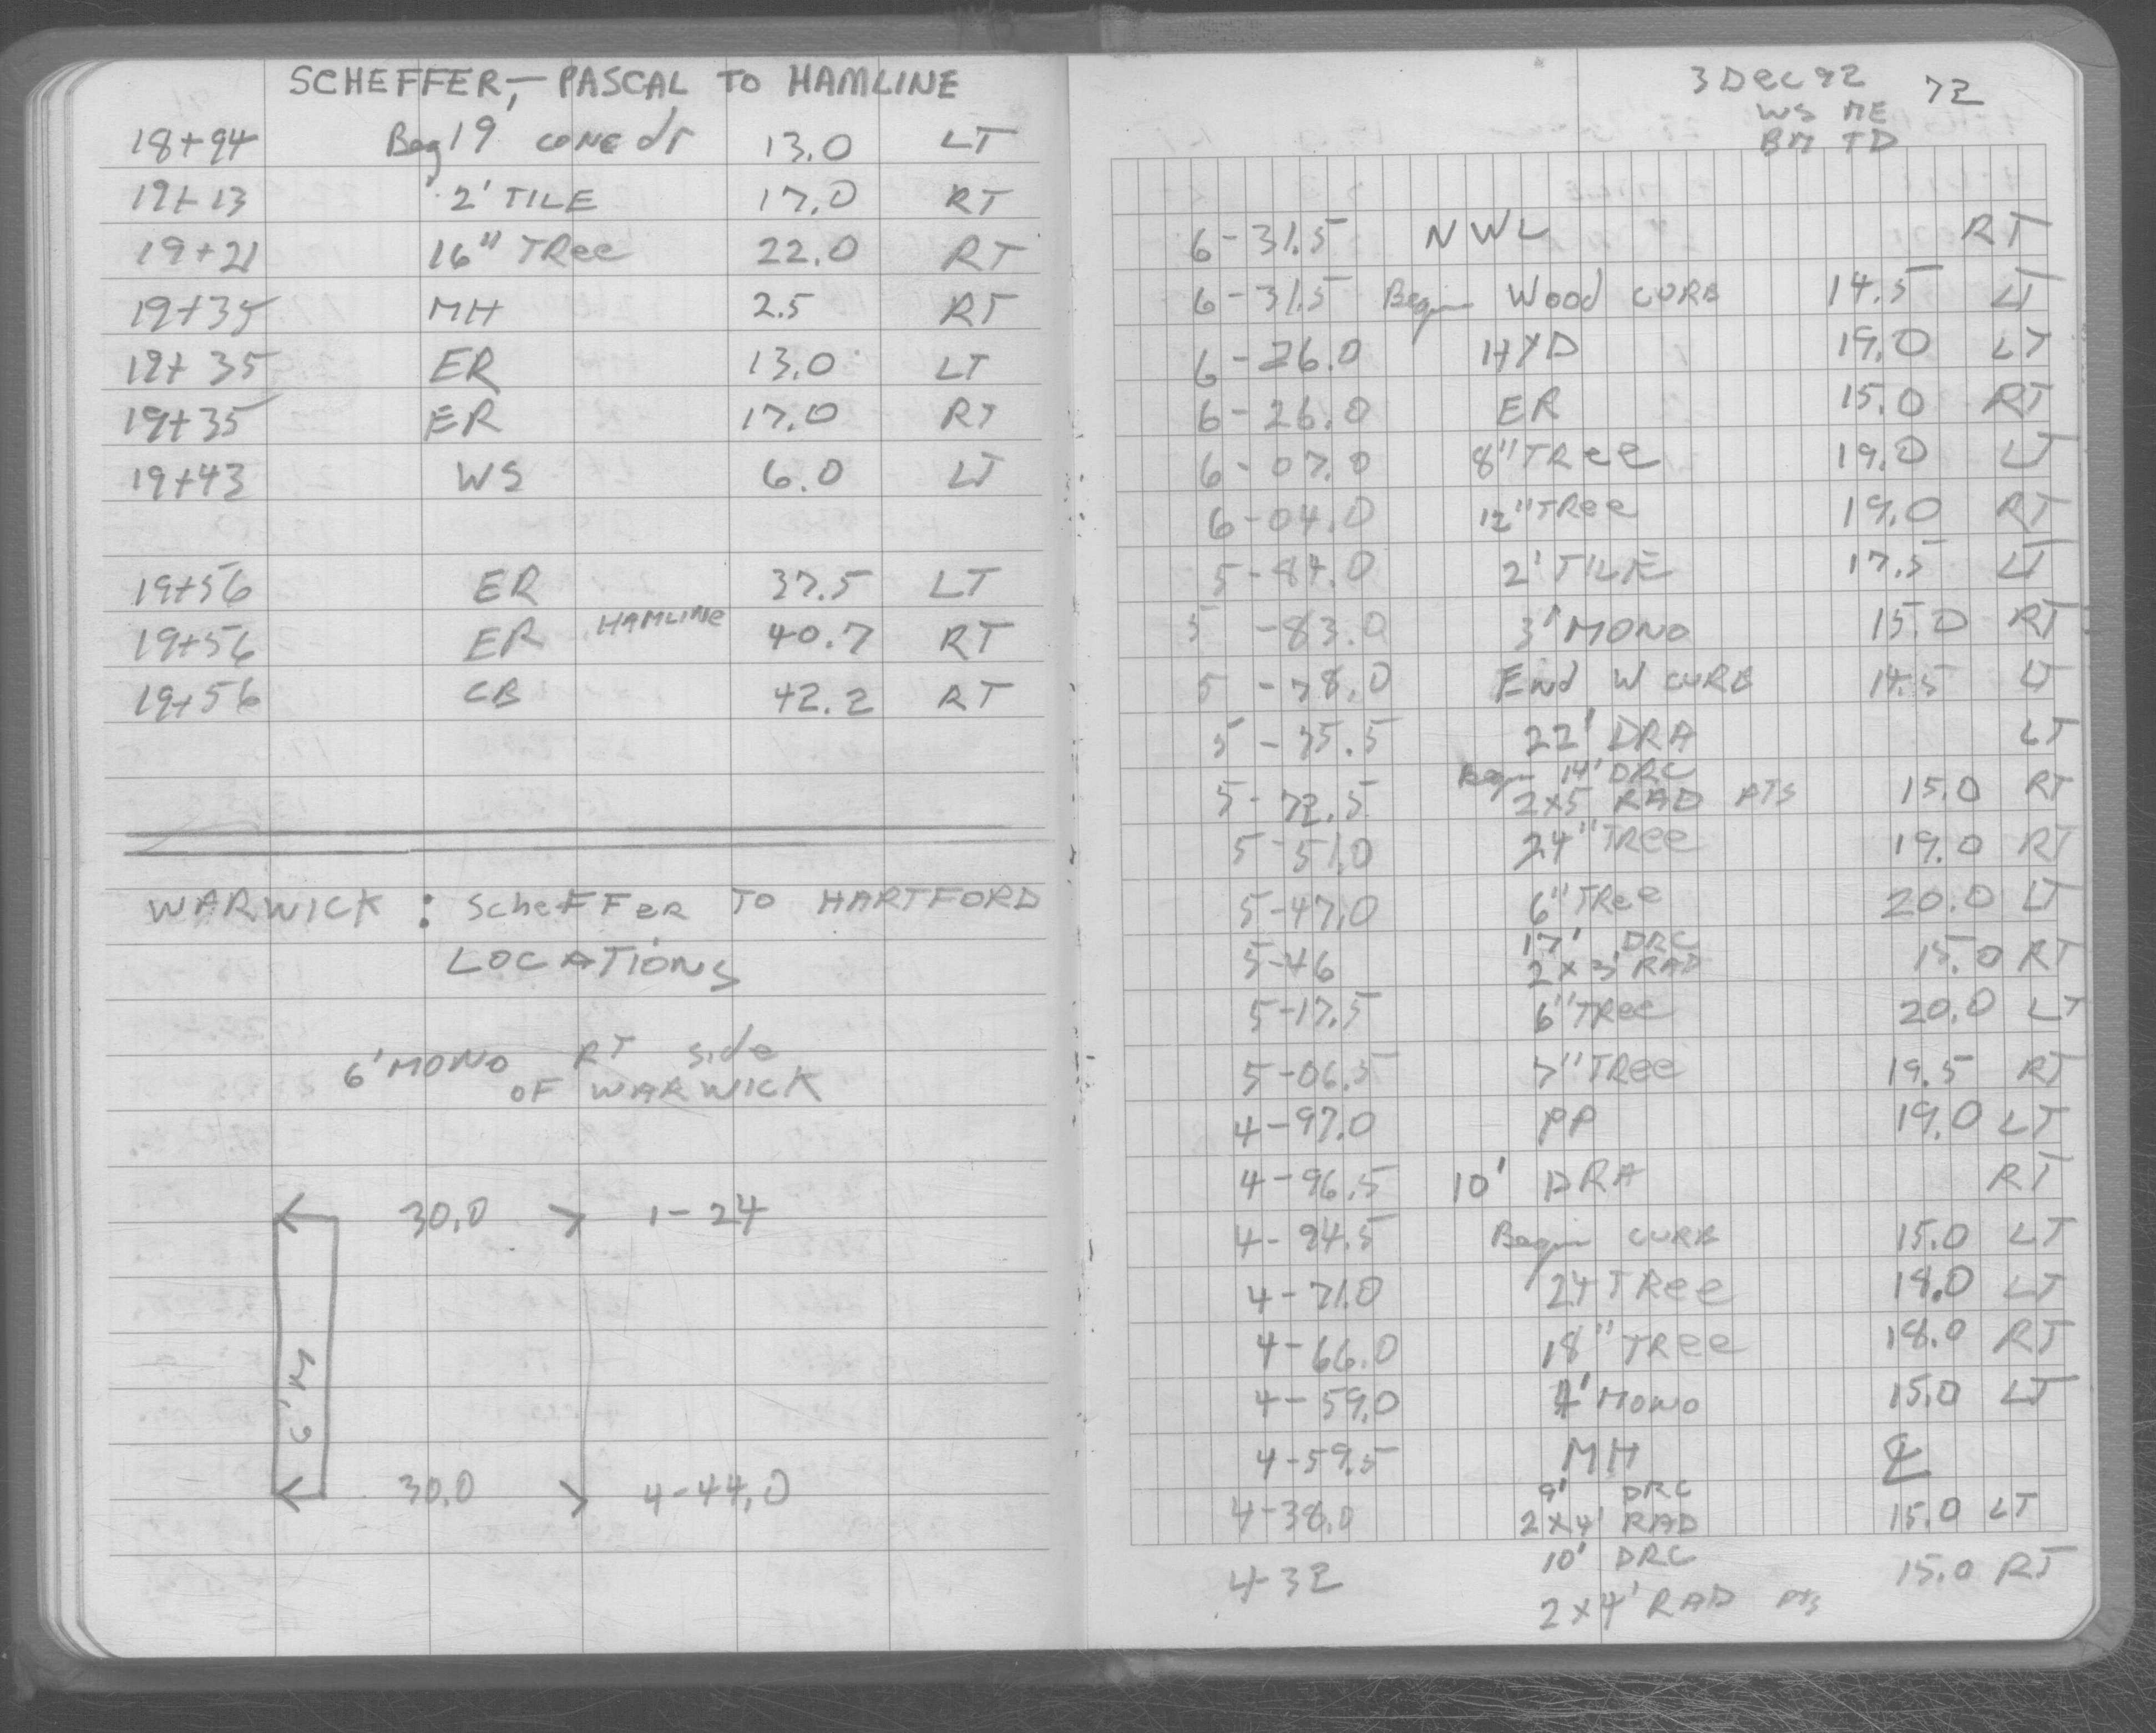 SCHEFFER, - PASCAL TO HAMLINE
18+94 Beg 19' CONC dr 13.0 LT
19+13 2' TILE 17.0 RT
19+21 16" TRee 22.0 RT
19+35 MH 2.5 RT
19+35 ER 13.0 LT
19+35 ER 17.0 RT
19+43 WS 6.0 LT
19+56 ER 37.5 LT
HAMLINE
19+56 ER 40.7 RT
19+56 CB 42.2 RT
WARWICK : ScheFFeR TO HARTFORD
LOCATIONS
6' MONO RT side
OF WARWICK
30.0 1-24
6'M
30.0 4-44.0
3 Dec 92 72
WS ME
BM TD
6-31.5 NWL RT
6-31.5 Begin Wood CURB 14.5 LT
6-26.0 HYD 19.0 LT
6-26.0 ER 15.0 RT
6-07.0 8" TRee 19.0 LT
6-04.0 12" TRee 19.0 RT
5-84.0 2' TILE 17.5 LT
5-83.0 3' MONO 15.0 RT
5-78.0 End W CURB 14.5 LT
5-75.5 22' DRA LT
Begin 14' DRC
5-72.5 2x5' RAD PTS 15.0 RT
5-51.0 24" TRee 19.0 RT
5-47.0 6" TRee 20.0 LT
17' DRC
5-46 2x3' RAD 15.0 RT
5-17.5 6" TRee 20.0 LT
5-06.5 7" TRee 19.5 RT
4-97.0 PP 19.0 LT
4-96.5 10' DRA RT
4-94.5 Begin CURB 15.0 LT
4-71.0 24 TRee 18.0 LT
4-66.0 18" TRee 18.0 RT
4-59.0 4' MONO 15.0 LT
4-59.5 MH ℄
9' DRC
4-38.0 2x4' RAD 15.0 LT
10' DRC
4-32 15.0 RT
2x4' RAD PTS